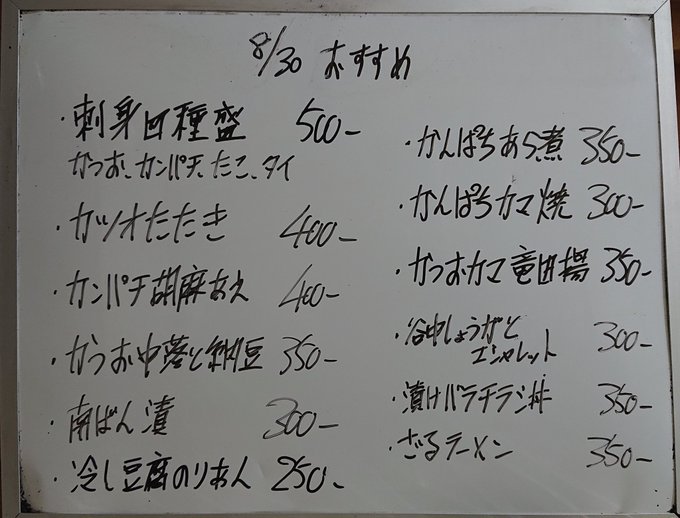 8/30 おすすめ
・刺身四種盛 500-
かつお、カンパチ、たこ、タイ
・カツオたたき 400-
・カンパチ胡麻あえ 400-
・かつお中落と納豆 350-
・南ばん漬 300-
・冷し豆腐のりあん 250-
・かんぱちあら煮 350-
・かんぱちカマ焼 300-
・かつおカマ竜田揚 350-
・谷中しょうがと
エシャレット 300-
・漬けバラチラシ丼 350-
・ざるラーメン 350-